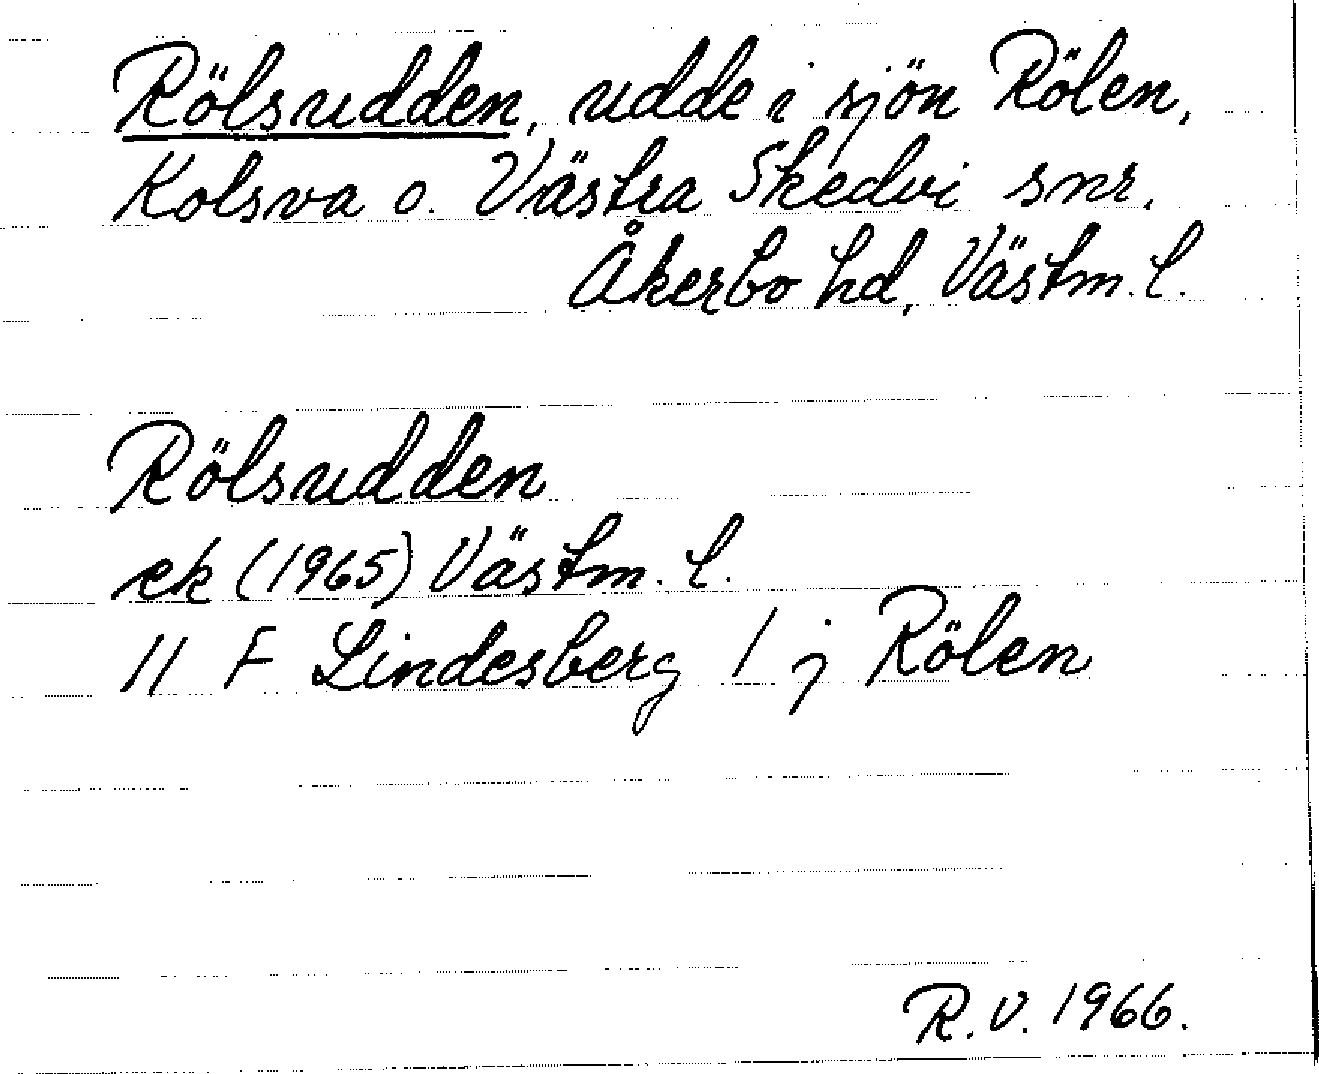 Rölsudden, udde i sjön Rölen,
Kolsva o. Västra Skedvi snr,
Åkerbo hd, Västm. l.
Rölsudden
ek (1965) Västm. l.
11 F Lindesberg 1 j Rölen
R.V. 1966.